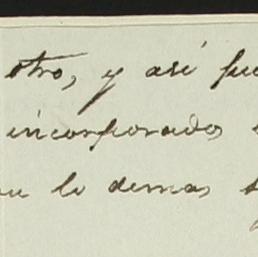 otro, y así
incorporados
lo demas